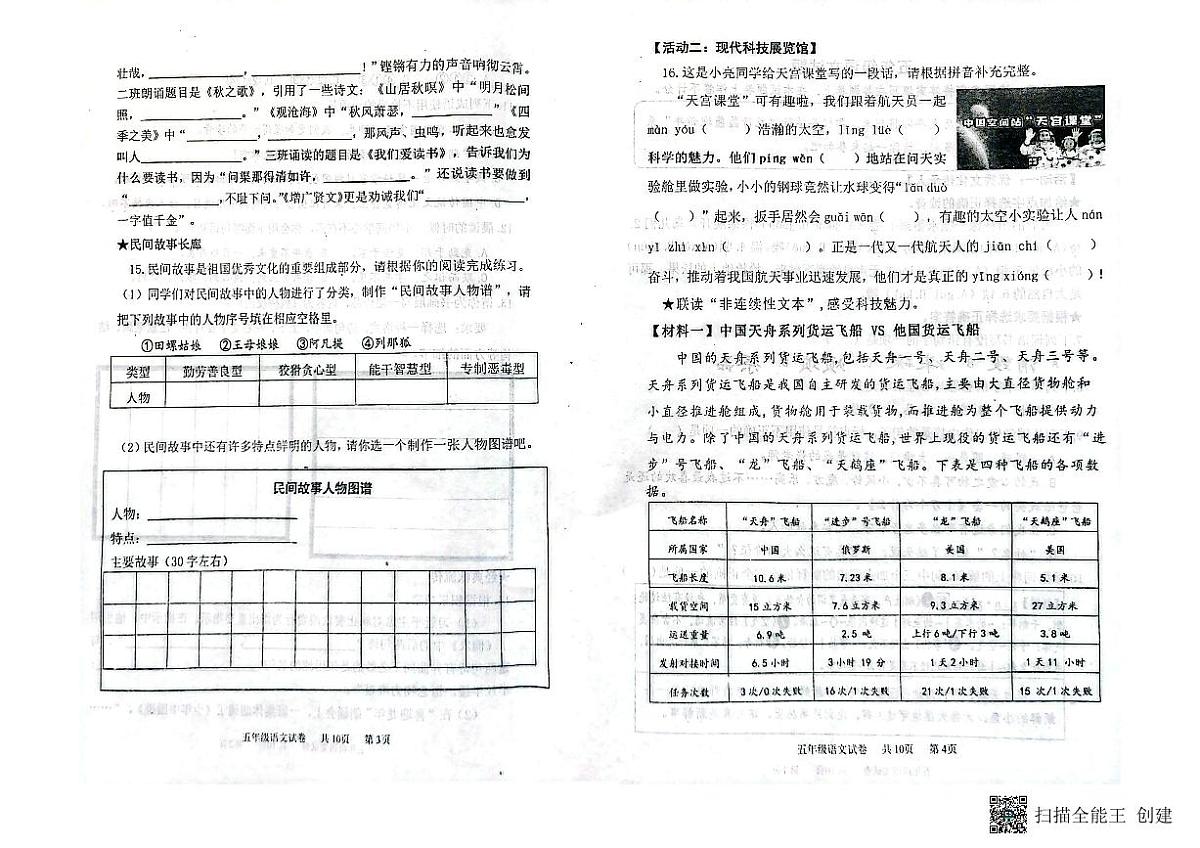 壮哉，____________，____________！”铿锵有力的声音响彻云霄。
二班朗诵题目是《秋之歌》，引用了一些诗文：《山居秋暝》中“明月松间
照，____________。”《观沧海》中“秋风萧瑟，____________”《四
季之美》中“____________，____________，那风声、虫鸣，听起来也愈发
叫人____________。”三班诵读的题目是《我们爱读书》，告诉我们为
什么要读书，因为“问渠那得清如许，____________。”还说读书要做到
“____________，不耻下问。”《增广贤文》更是劝诫我们“____________，
一字值千金”。
★民间故事长廊
15.民间故事是祖国优秀文化的重要组成部分，请根据你的阅读完成练习。
（1）同学们对民间故事中的人物进行了分类，制作“民间故事人物谱”，请
把下列故事中的人物序号填在相应空格里。
①田螺姑娘 ②王母娘娘 ③阿凡提 ④列那狐
类型 勤劳善良型 狡猾贪心型 能干智慧型 专制恶毒型
人物
（2）民间故事中还有许多特点鲜明的人物，请你选一个制作一张人物图谱吧。
民间故事人物图谱
人物：____________
特点：____________
主要故事（30字左右）
五年级语文试卷 共10页 第3页
【活动二：现代科技展览馆】
16.这是小亮同学给天宫课堂写的一段话，请根据拼音补充完整。
“天宫课堂”可有趣啦，我们跟着航天员一起
màn yóu（ ）浩瀚的太空，lǐng lüè（ ）
科学的魅力。他们píng wěn（ ）地站在问天实
验舱里做实验，小小的钢球竟然让水球变得“lǎn duò
（ ）”起来，扳手居然会guǎi wān（ ），有趣的太空小实验让人nán
yǐ zhì xìn（ ）。正是一代又一代航天人的jiān chí（ ）
奋斗，推动着我国航天事业迅速发展，他们才是真正的yīng xióng（ ）！
中国空间站“天宫课堂”
★联读“非连续性文本”，感受科技魅力。
【材料一】中国天舟系列货运飞船 VS 他国货运飞船
中国的天舟系列货运飞船，包括天舟一号、天舟二号、天舟三号等。
天舟系列货运飞船是我国自主研发的货运飞船，主要由大直径货物舱和
小直径推进舱组成，货物舱用于装载货物，而推进舱为整个飞船提供动力
与电力。除了中国的天舟系列货运飞船，世界上现役的货运飞船还有“进
步”号飞船、“龙”飞船、“天鹅座”飞船。下表是四种飞船的各项数
据。
飞船名称 “天舟”飞船 “进步”号飞船 “龙”飞船 “天鹅座”飞船
所属国家 中国 俄罗斯 美国 美国
飞船长度 10.6米 7.23米 8.1米 5.1米
载货空间 15立方米 7.6立方米 9.3立方米 27立方米
运送重量 6.9吨 2.5吨 上行6吨/下行3吨 3.8吨
发射对接时间 6.5小时 3小时19分 1天2小时 1天11小时
任务次数 3次/0次失败 16次/1次失败 21次/1次失败 15次/1次失败
五年级语文试卷 共10页 第4页
扫描全能王 创建